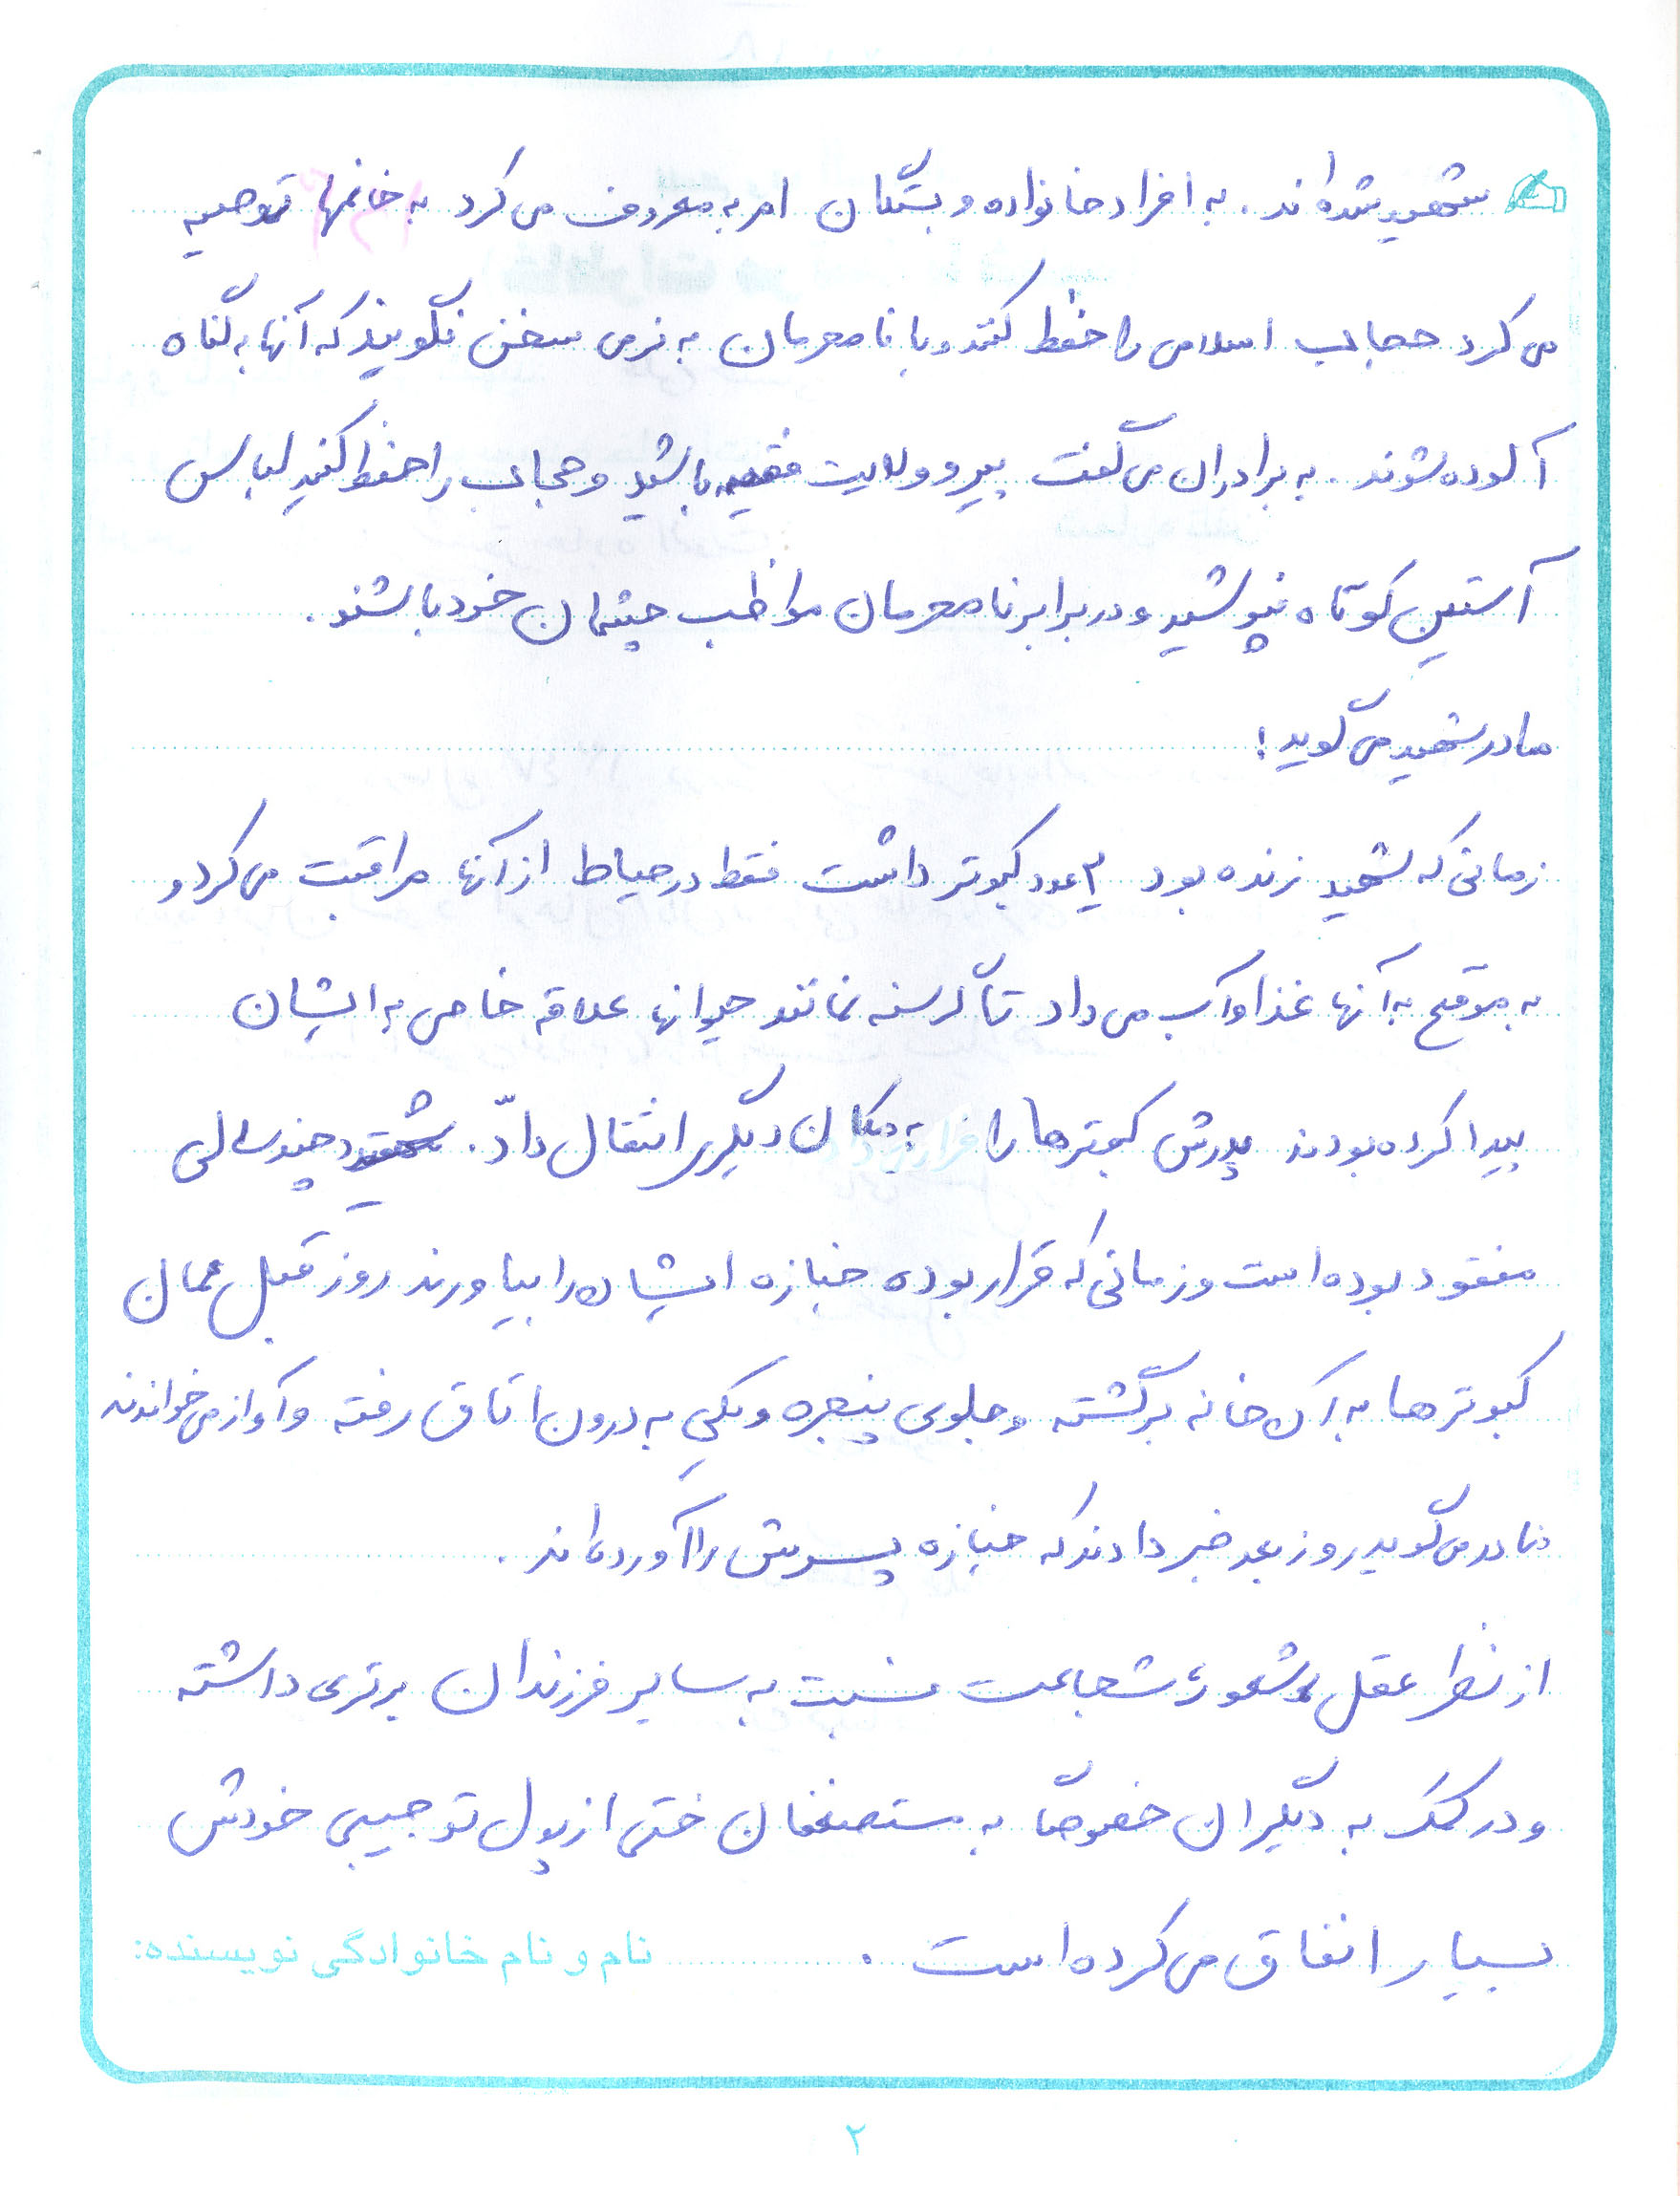 شهید شده‌اند. به افراد خانواده و بستگان امر به معروف می‌کرد به خانمها توصیه
می‌کرد حجاب اسلامی را حفظ کنند و با نامحرمان به نرمی سخن نگویند که آنها به گناه
آلوده شوند. به برادران می‌گفت پیرو ولایت فقیه باشید و حجاب را حفظ کنید لباس
آستین کوتاه نپوشید و در برابر نامحرمان مواظب چشمان خود باشند.
مادر شهید می‌گوید:
زمانی که شهید زنده بود ۳ عدد کبوتر داشت فقط در حیاط از آنها مراقبت می‌کرد و
به موقع به آنها غذا و آب می‌داد تا گرسنه نمانند حیوانها علاقه خاصی به ایشان
پیدا کرده بودند پدرش کبوترها را به مکان دیگری انتقال داد. شهید چند سالی
مفقود بوده است و زمانی که قرار بوده جنازه ایشان را بیاورند روز قبل همان
کبوترها به آن خانه برگشته و جلوی پنجره و یکی به درون اتاق رفته و آواز می‌خواندند
مادر می‌گوید روز بعد خبر دادند که جنازه پسرش را آورده‌اند.
از نظر عقل و شعور و شجاعت نسبت به سایر فرزندان برتری داشته
و در کمک به دیگران خصوصاً به مستضعفان حتی از پول تو جیبی خودش
بسیار انفاق می‌کرده است.
نام و نام خانوادگی نویسنده:
۲